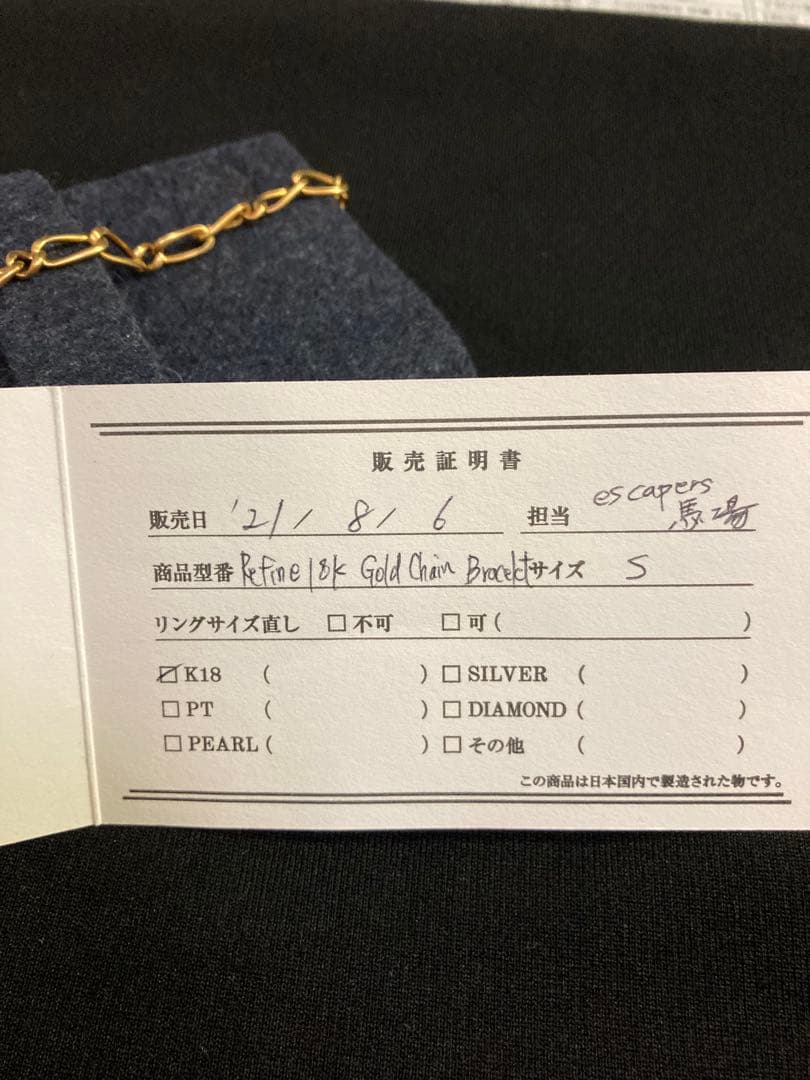 販売証明書
販売日 '21/ 8/ 6 担当 escapers 馬場
商品型番 Refine 18k Gold Chain Bracelet サイズ S
リングサイズ直し □不可 □可( )
☑K18 ( ) □SILVER ( )
□PT ( ) □DIAMOND ( )
□PEARL ( ) □その他 ( )
この商品は日本国内で製造された物です。